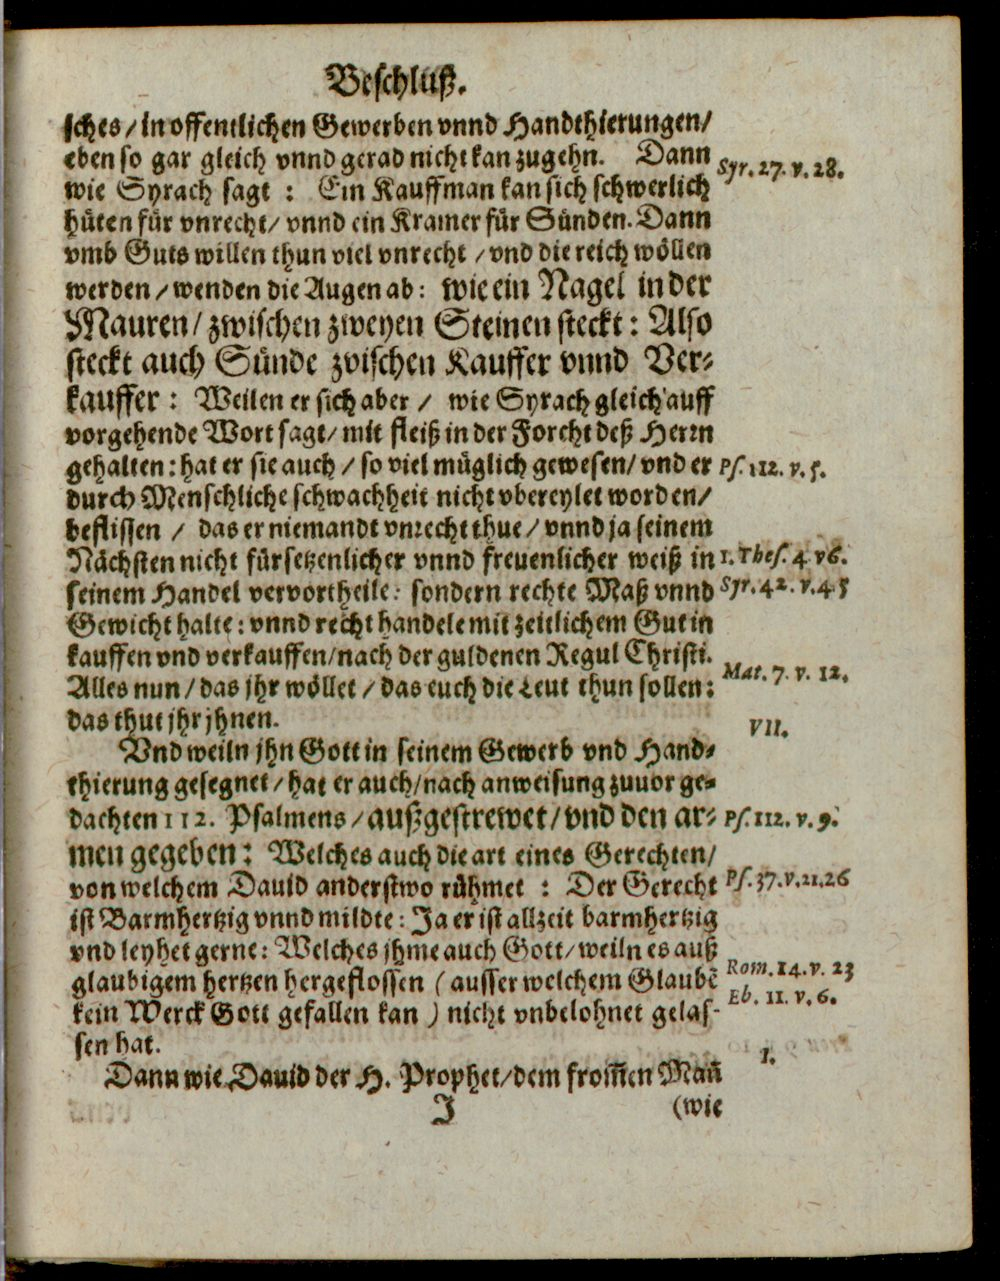 Beschluß.
sches / in offentlichen Gewerben vnnd Handthierungen /
eben so gar gleich vnnd gerad nicht kan zugehn. Dann
Syr. 27. v. 28.
wie Syrach sagt : Ein Kauffman kan sich schwerlich
hüten für vnrecht / vnnd ein Kramer für Sünden. Dann
vmb Guts willen thun viel vnrecht / vnd die reich wöllen
werden / wenden die Augen ab : wie ein Nagel in der
Mauren / zwischen zweyen Steinen steckt : Also
steckt auch Sünde zvischen Kauffer vnnd Ver-
kauffer : Weilen er sich aber / wie Syrach gleich auff
vorgehende Wort sagt / mit fleiß in der Forcht deß Herrn
gehalten : hat er sie auch / so viel müglich gewesen / vnd er
Ps. 112. v. 5.
durch Menschliche schwachheit nicht vbereylet worden /
beflissen / das er niemandt vnrecht thue / vnnd ja seinem
Nächsten nicht fürsetzenlicher vnnd freuenlicher weiß in
1. Thes. 4. v 6.
seinem Handel vervortheile : sondern rechte Maß vnnd
Syr. 42. v. 4. 5
Gewicht halte : vnnd recht handele mit zeitlichem Gut in
kauffen vnd verkauffen / nach der guldenen Regul Christi.
Alles nun / das jhr wöllet / das euch die Leut thun sollen :
Mat. 7. v. 12.
das thut jhr jhnen.
VII.
Vnd weiln jhn Gott in seinem Gewerb vnd Hand-
thierung gesegnet / hat er auch / nach anweisung zuuor ge-
dachten 112. Psalmens / außgestrewet / vnd den ar-
Ps. 112. v. 9.
men gegeben : Welches auch die art eines Gerechten /
von welchem Dauid anderstwo rühmet : Der Gerecht
Ps. 37. v. 21. 26
ist Barmhertzig vnnd mildte : Ja er ist allzeit barmhertzig
vnd leyhet gerne : Welches jhme auch Gott / weiln es auß
glaubigem hertzen hergeflossen ( ausser welchem Glaubē
Rom. 14. v. 23
kein Werck Gott gefallen kan ) nicht vnbelohnet gelas-
Eb. 11. v. 6.
sen hat.
1.
Dann wie Dauid der H. Prophet / dem from̄en Man̄
J
(wie